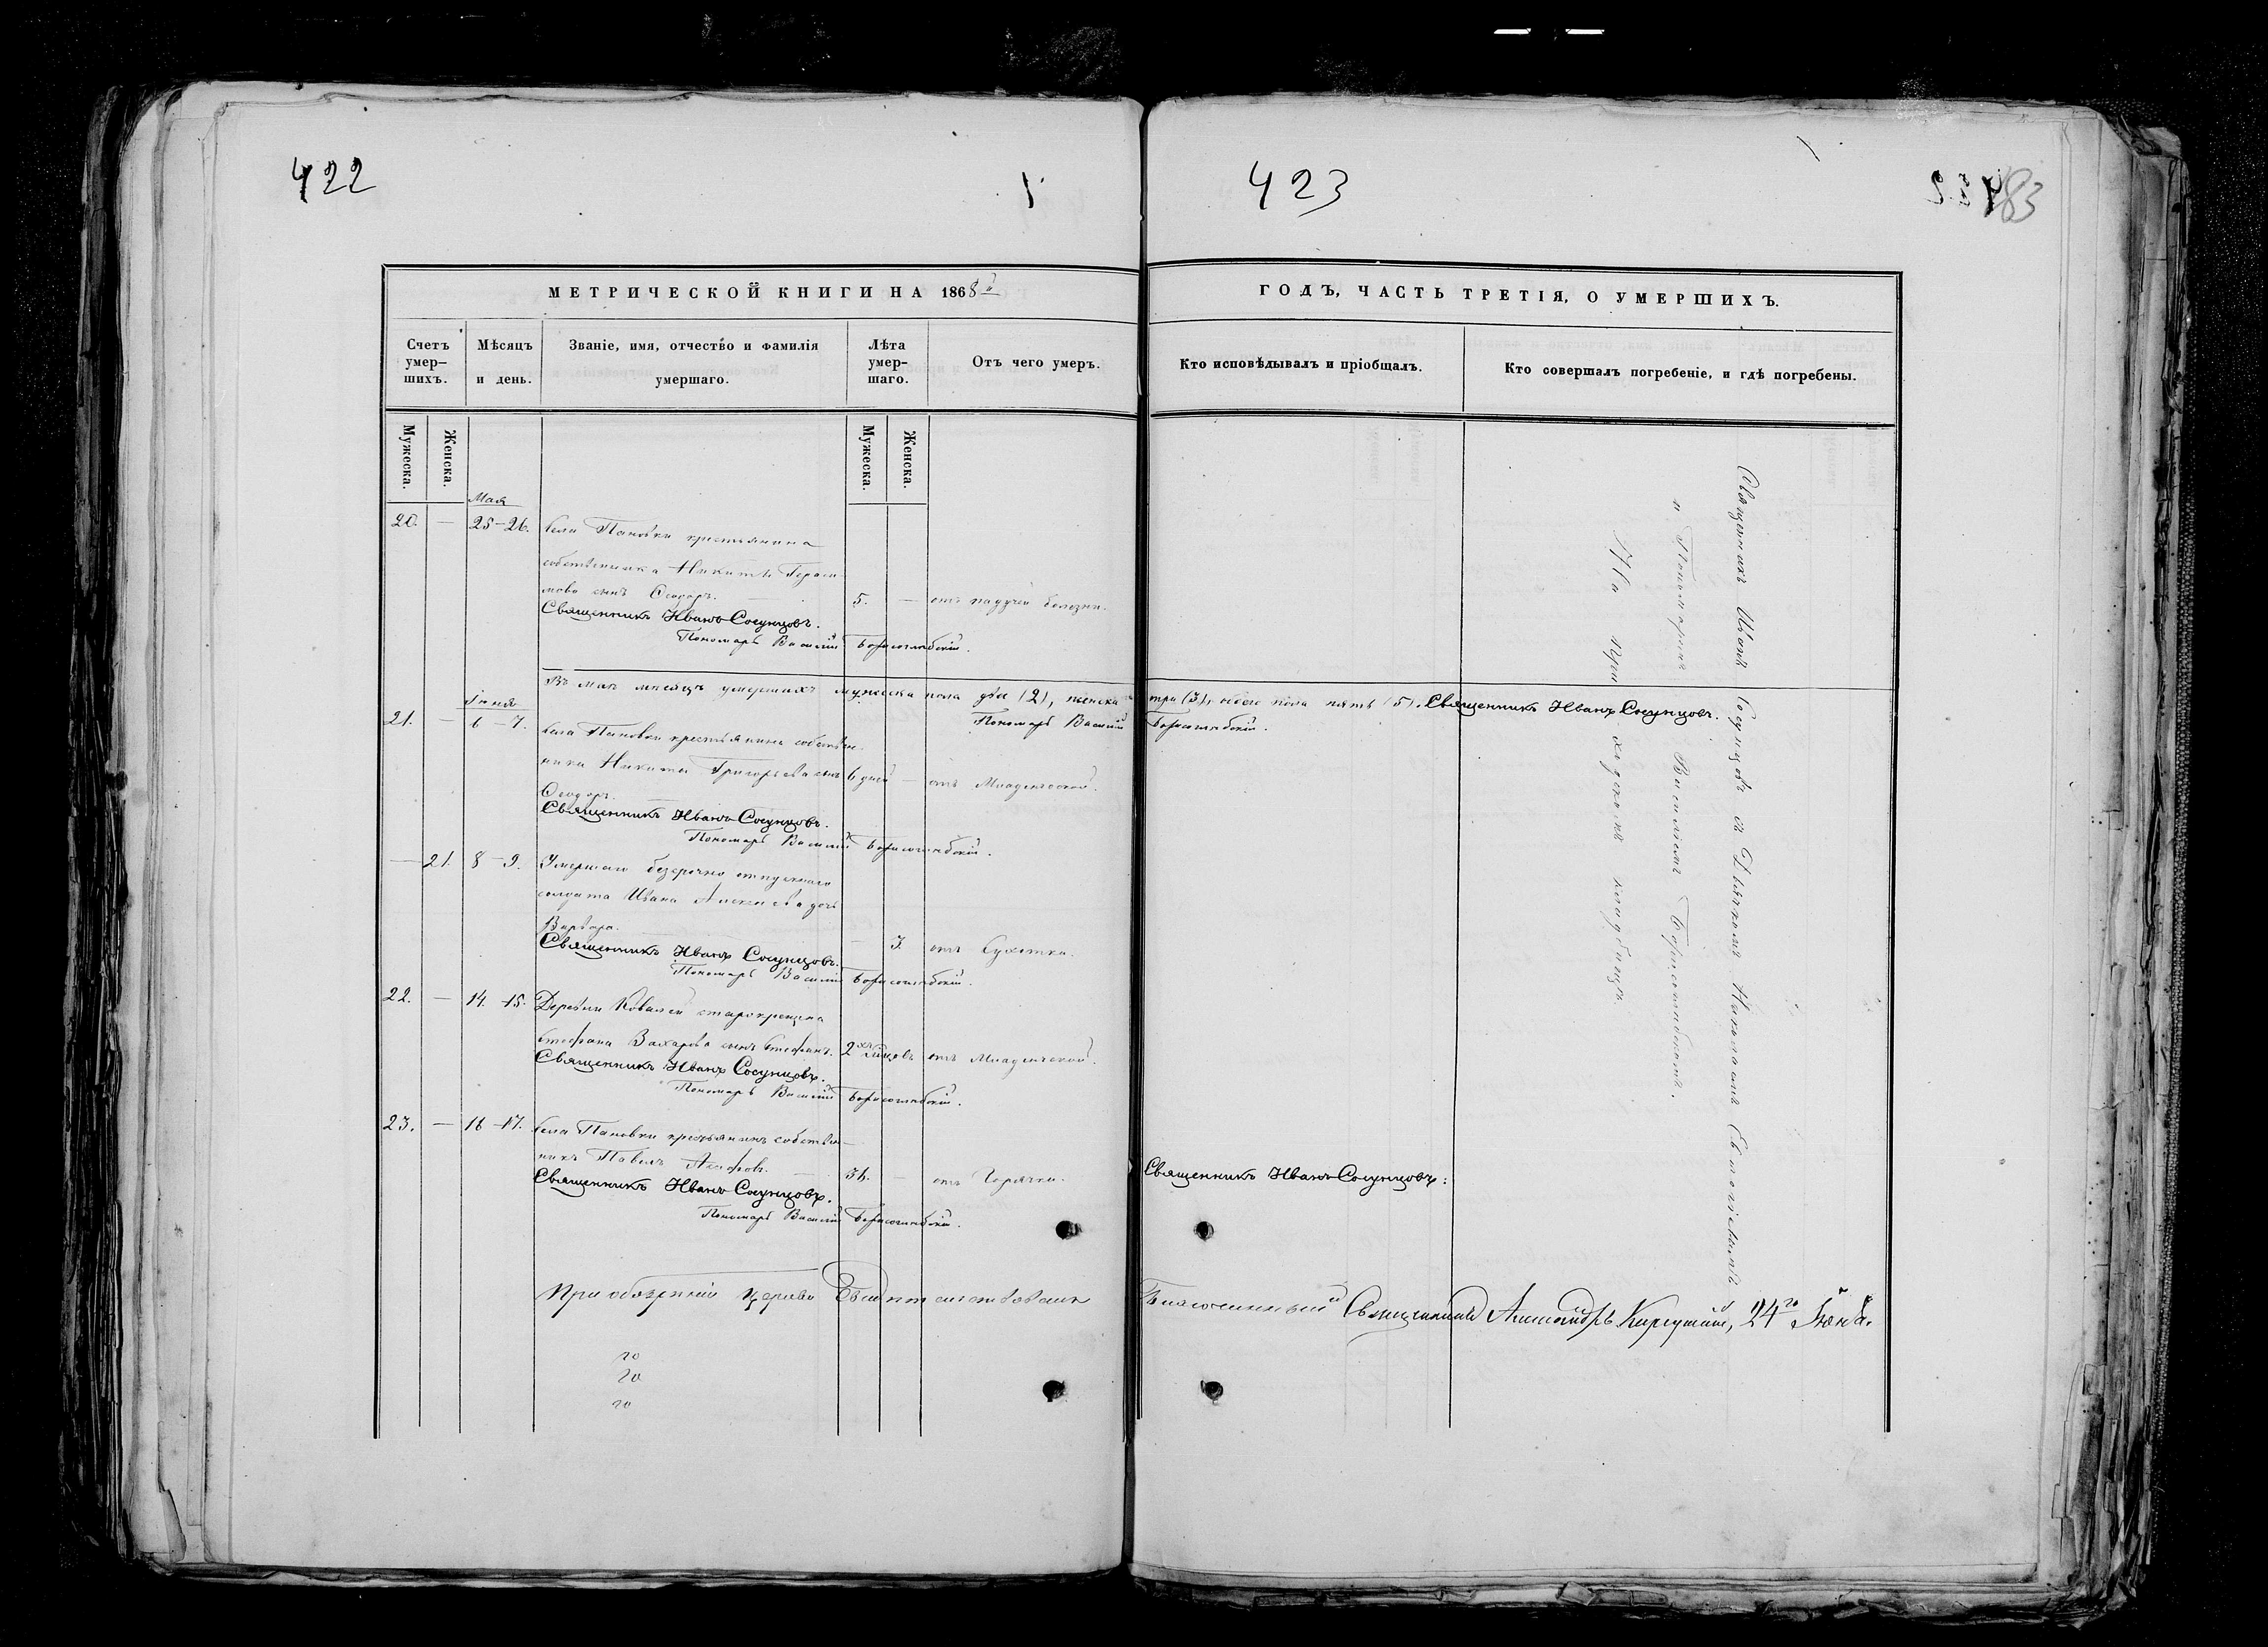 422
423
483
МЕТРИЧЕСКОЙ КНИГИ НА 1868й
ГОДЪ, ЧАСТЬ ТРЕТІЯ, О УМЕРШИХЪ.
Счетъ умер-шихъ.
Мѣсяцъ и день.
Званіе, имя, отчество и фамилія умершаго.
Лѣта умер-шаго.
Отъ чего умеръ.
Кто исповѣдывалъ и пріобщалъ.
Кто совершалъ погребеніе, и гдѣ погребены.
Мужеска.
Женска.
Мужеска.
Женска.
Мая
20. — 25-26. Села Пановки крестьянина
собственника Никиты Гераси-
мова сынъ Ѳеодоръ. 5. — отъ падучей болезни.
Священникъ Иванъ Сосунцовъ.
Пономарь Василій Борисоглѣбскій.
Въ маѣ мѣсяцѣ умершихъ мужеска пола два (2), женска три (3), обоего пола пять (5). Священникъ Иванъ Сосунцовъ.
Пономарь Василій Борисоглѣбскій.
Іюня
21. — 6-7. Села Пановки крестьянина собствен-
ника Никиты Григорьева сынъ 6 дней — отъ Младенческой.
Ѳеодоръ.
Священникъ Иванъ Сосунцовъ.
Пономарь Василій Борисоглѣбскій.
— 21. 8-9. Умершаго безсрочно отпускнаго
солдата Ивана Алексѣева дочь
Варвара. — 3. отъ Сухотки.
Священникъ Иванъ Сосунцовъ.
Пономарь Василій Борисоглѣбскій.
22. — 14-15. Деревни Ковалей старокрещена
Стефана Захарова сынъ Стефанъ. 2хъ мѣсяцовъ отъ Младенческой.
Священникъ Иванъ Сосунцовъ.
Пономарь Василій Борисоглѣбскій.
23. — 16-17. Села Пановки крестьянинъ собствен-
никъ Павелъ 56. — отъ Горячки. Священникъ Иванъ Сосунцовъ.
Священникъ Иванъ Сосунцовъ.
Пономарь Василій Борисоглѣбскій.
При обозрѣніи церкви свидѣтельствовалъ Благочинный Священникъ Александръ 24го Іюня.
Священникъ Иванъ Сосунцовъ съ Дьячкомъ Николаемъ
и Пономаремъ Василіемъ Борисоглѣбскимъ.
На приходскомъ кладбищѣ.